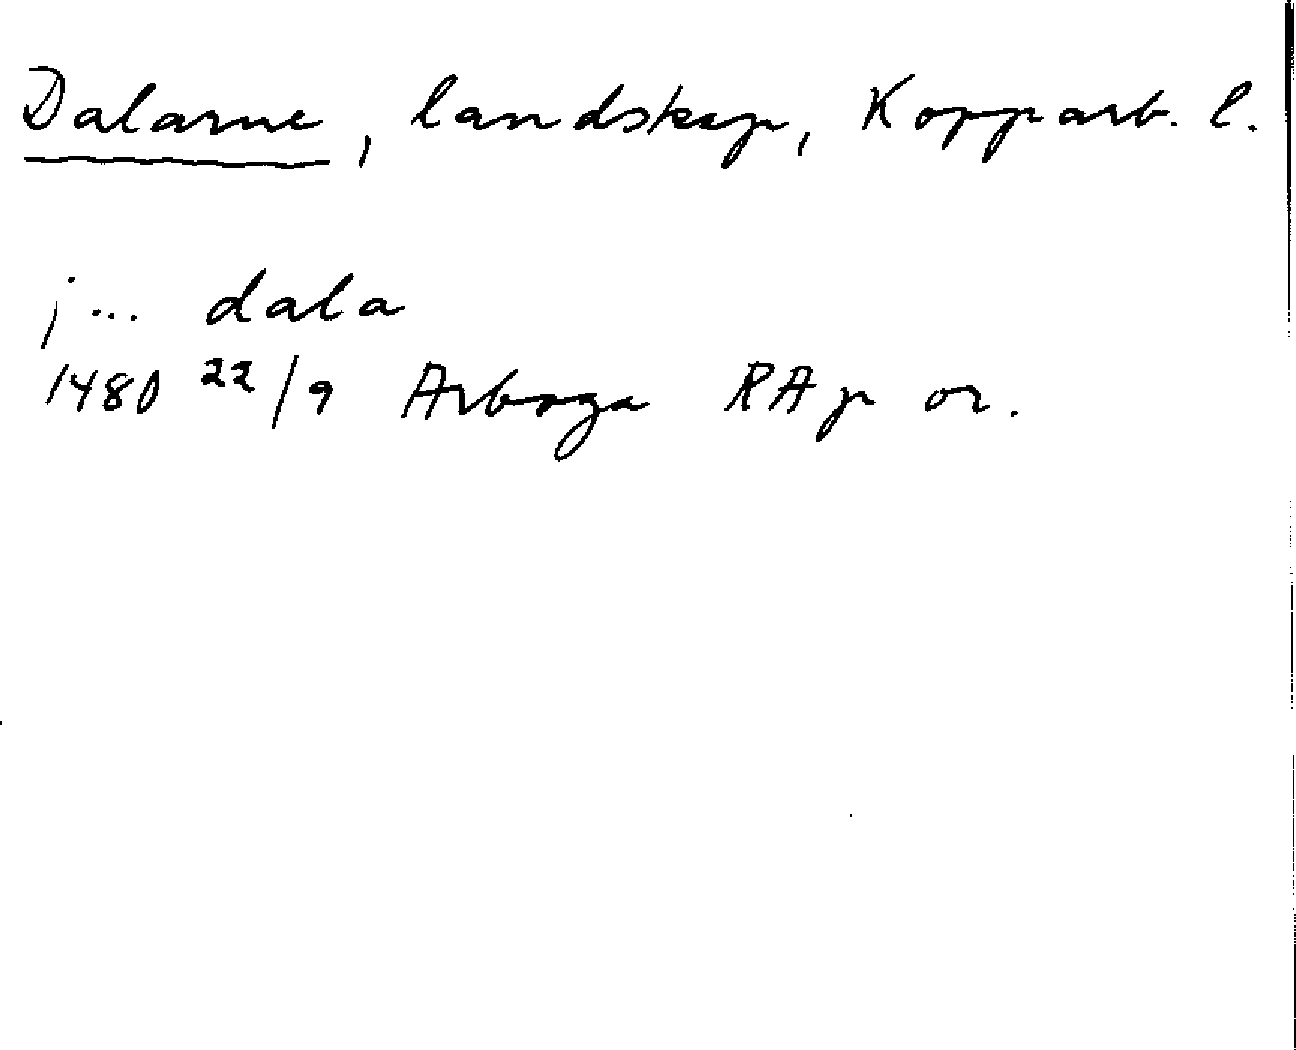 Dalarne, landskap, Kopparb. l.
j... dala
1480 22/9 Arboga RAp or.